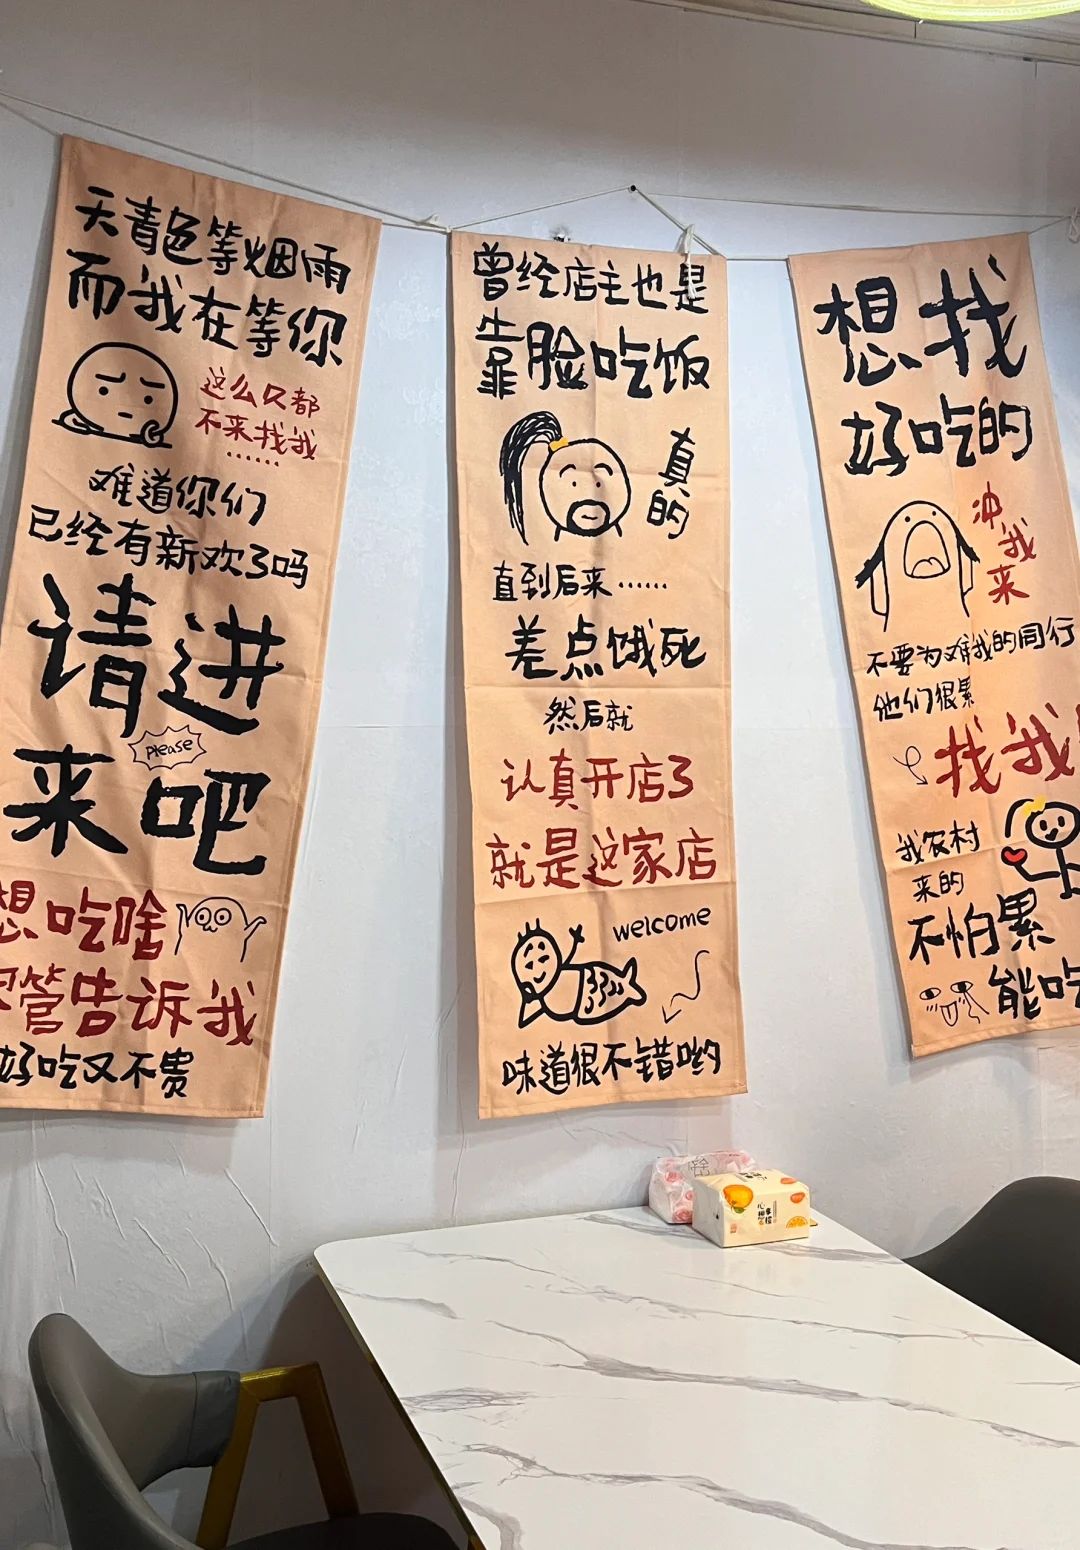 天青色等烟雨
而我在等你
这么久都
不来找我
······
难道你们
已经有新欢了吗
请进
please
来吧
想吃啥
管告诉我
好吃又不贵
曾经店主也是
靠脸吃饭
真的
直到后来······
差点饿死
然后就
认真开店了
就是这家店
welcome
味道很不错哟
想找
好吃的
冲我来
不要为难我的同行
他们很累
找我
我农村
来的
不怕累
能吃